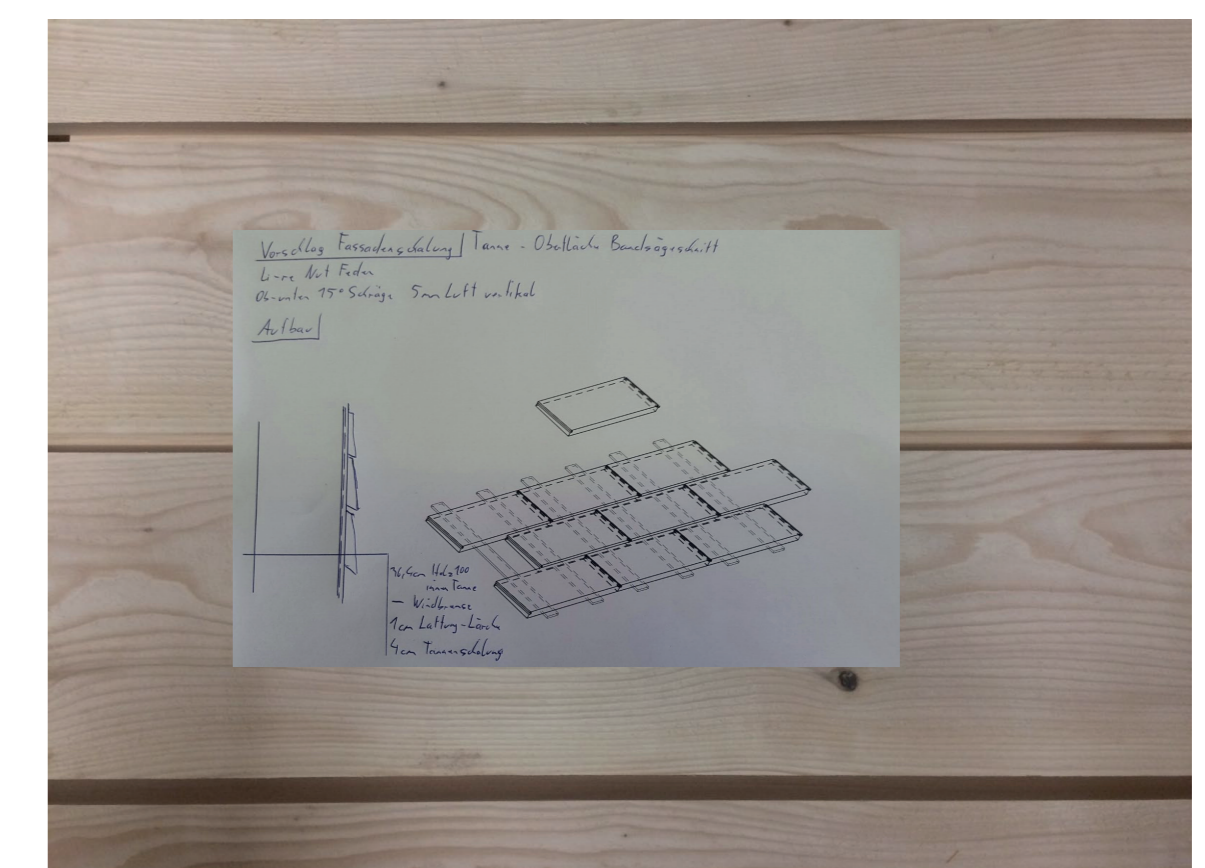 Vorschlag Fassadenschalung Tanne - Oberfläche Bandsägeschnitt
Li-re Nut Feder
Ob-unten 15° Schräge 5mm Luft vertikal
Aufbau
36,4cm Holz100
innen Tanne
– Windbremse
1cm Lattung-Lärche
4cm Tannenschalung